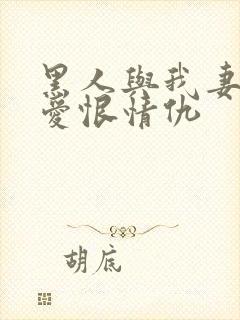 黑人與我妻
愛恨情仇
胡底